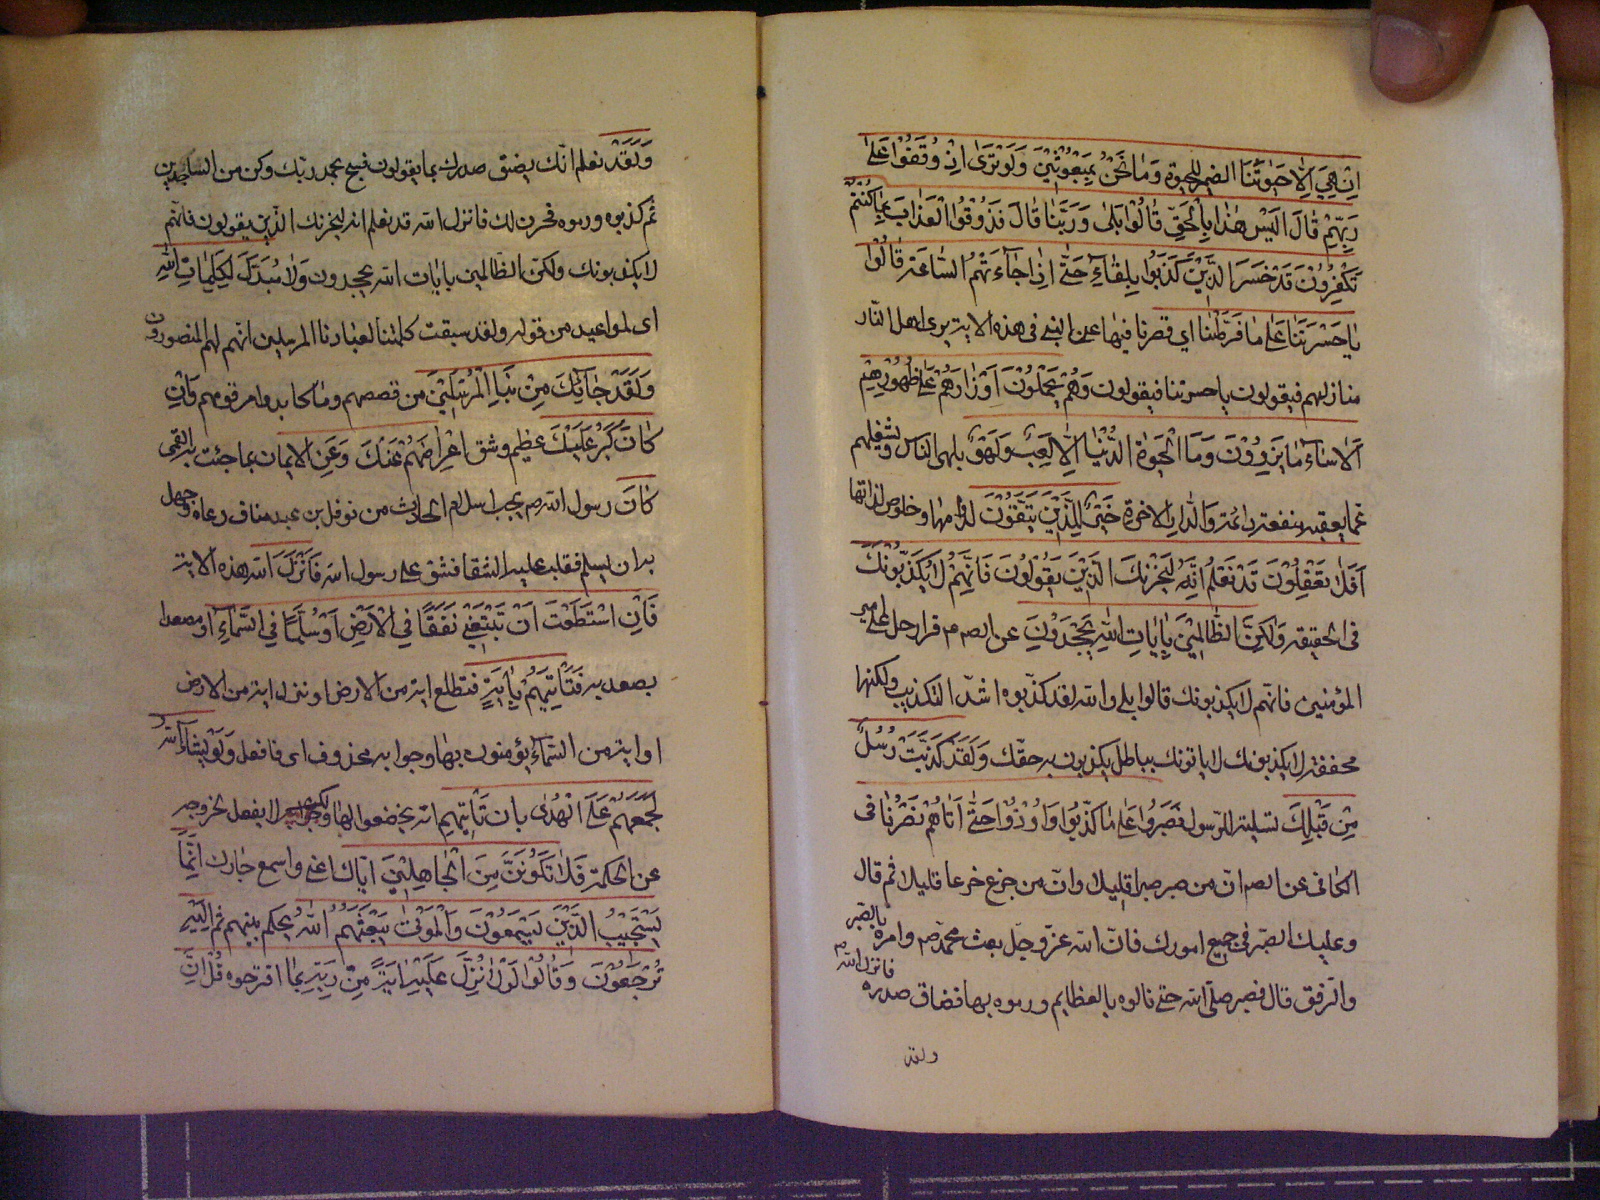 اِنْ هِيَ اِلَّا حَيٰوتُنَا الضمير للحيوة وَمَا نَحْنُ بِمَبْعُوثِينَ وَلَوْ تَرٰى اِذْ وُقِفُوا عَلٰى
رَبِّهِمْ قَالَ اَلَيْسَ هٰذَا بِالْحَقِّ قَالُوا بَلٰى وَرَبِّنَا قَالَ فَذُوقُوا الْعَذَابَ بِمَا كُنْتُمْ
تَكْفُرُونَ قَدْ خَسِرَ الَّذِينَ كَذَّبُوا بِلِقَاءِ حَتّٰى اِذَا جَاءَتْهُمُ السَّاعَةُ قَالُوا
يَا حَسْرَتَنَا عَلٰى مَا فَرَّطْنَا اي قصرنا فيها عن النبي في هذه الاية يرى اهل النار
منازلهم فيقولون يا حسرتنا فيقولون وَهُمْ يَحْمِلُونَ اَوْزَارَهُمْ عَلٰى ظُهُورِهِمْ
اَلَا سَاءَ مَا يَزِرُونَ وَمَا الْحَيٰوةُ الدُّنْيَا اِلَّا لَعِبٌ وَلَهْوٌ يلهى الناس ويشغلهم
عما يعقبه منفعة دائمة وَالدَّارُ الْاٰخِرَةُ خَيْرٌ لِلَّذِينَ يَتَّقُونَ لدوامها وخلوص لذاتها
اَفَلَا يَعْقِلُونَ قَدْ نَعْلَمُ اِنَّهُ لَيَحْزُنُكَ الَّذِينَ يَقُولُونَ فَاِنَّهُمْ لَا يُكَذِّبُونَكَ
في الحقيقة وَلٰكِنَّ الظَّالِمِينَ بِاٰيَاتِ اللّٰهِ يَجْحَدُونَ عن الصم م قرا رجل على امير
المؤمنين فانهم لا يكذبونك قالوا بلى والله لقد كذبوه اشد التكذيب ولكنها
مخففة لا يكذبونك لا ياتونك بباطل يكذبون به حقك وَلَقَدْ كُذِّبَتْ رُسُلٌ
مِنْ قَبْلِكَ تسلية للرسول فَصَبَرُوا عَلٰى مَا كُذِّبُوا وَاُوذُوا حَتّٰى اَتَاهُمْ نَصْرُنَا في
الكافى عن الصم ان من صبر صبر قليلا وان من جزع جزعا قليلا ثم قال
وعليك الصبر في جميع امورك فان الله عز وجل بعث محمدا ص وامره بالصبر
والرفق قال فصبر صلى الله حتى نالوه بالعظايم ورموه بها فضاق صدره فانزل الله
ولقد
وَلَقَدْ نعلم انك يضيق صدرك بما يقولون فسبح بحمد ربك وكن من الساجدين
ثم كذبوه ورموه فحزن لك فانزل الله قد نعلم انه ليحزنك الذين يقولون فانهم
لا يكذبونك ولكن الظالمين بايات الله يجحدون وَلَا مُبَدِّلَ لِكَلِمَاتِ اللّٰهِ
اى لمواعيد من قوله ولقد سبقت كلمتنا لعبادنا المرسلين انهم لهم المنصورون
وَلَقَدْ جَاءَكَ مِنْ نَبَاِ الْمُرْسَلِينَ من قصصهم وما كابدوا من قومهم وَاِنْ
كَانَ كَبُرَ عَلَيْكَ عظيم وشق اِعْرَاضُهُمْ عَنْكَ وَعَنِ الايمان بما جئت به القمى
كَانَ رسول الله ص يحب اسلام الحارث من نوفل بن عبد مناف دعاه وجهل
به ان يسلم فغلب عليه الشقا فشق على رسول الله فَاَنْزَلَ الله هذه الاية
فَاِنِ اسْتَطَعْتَ اَنْ تَبْتَغِيَ نَفَقًا فِي الْاَرْضِ اَوْ سُلَّمًا فِي السَّمَاءِ او مصعدا
يصعد به فَتَاْتِيَهُمْ بِاٰيَةٍ فتطلع اية من الارض او تنزل اية من الارض
او اية من السماء يؤمنون بها وجوابه محذوف اى فافعل وَلَوْ يَشَاءُ اللّٰهُ
لَجَمَعَهُمْ عَلَى الْهُدٰى بان تَاْتِيَهُمْ اية يخضعوا لها ولكن لا يفعل لخروجه
عن الحكمة فَلَا تَكُونَنَّ مِنَ الْجَاهِلِينَ اياك اعنى واسمع جارة اِنَّمَا
يَسْتَجِيبُ الَّذِينَ يَسْمَعُونَ وَالْمَوْتٰى يَبْعَثُهُمُ اللّٰهُ يحكم بينهم ثُمَّ اِلَيْهِ
تُرْجَعُونَ وَقَالُوا لَوْلَا نُزِّلَ عَلَيْهِ اٰيَةٌ مِنْ رَبِّهِ بما اقترحوه قُلْ اِنَّ